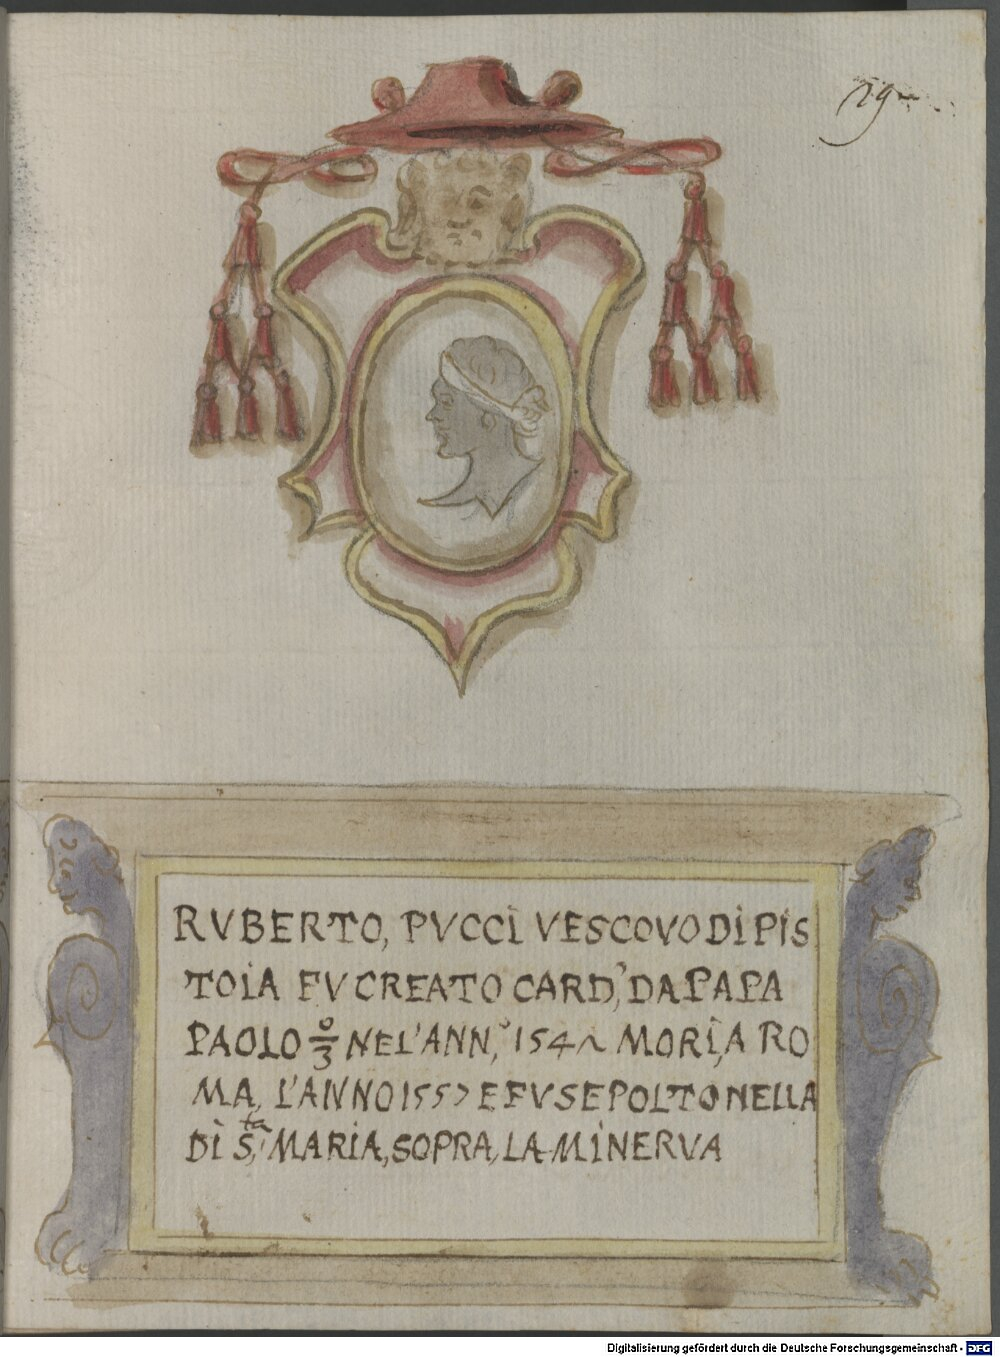 29
RVBERTO, PVCCI VESCOVO DI PIS
TOIA FV CREATO CARD, DA PAPA
PAOLO 3° NEL'ANN,° 154 MORI, A RO
MA, L'ANNO 1557 E FV SEPOLTO NELLA
DI S,ta MARIA, SOPRA, LA MINERVA
Digitalisierung gefördert durch die Deutsche Forschungsgemeinschaft - DFG